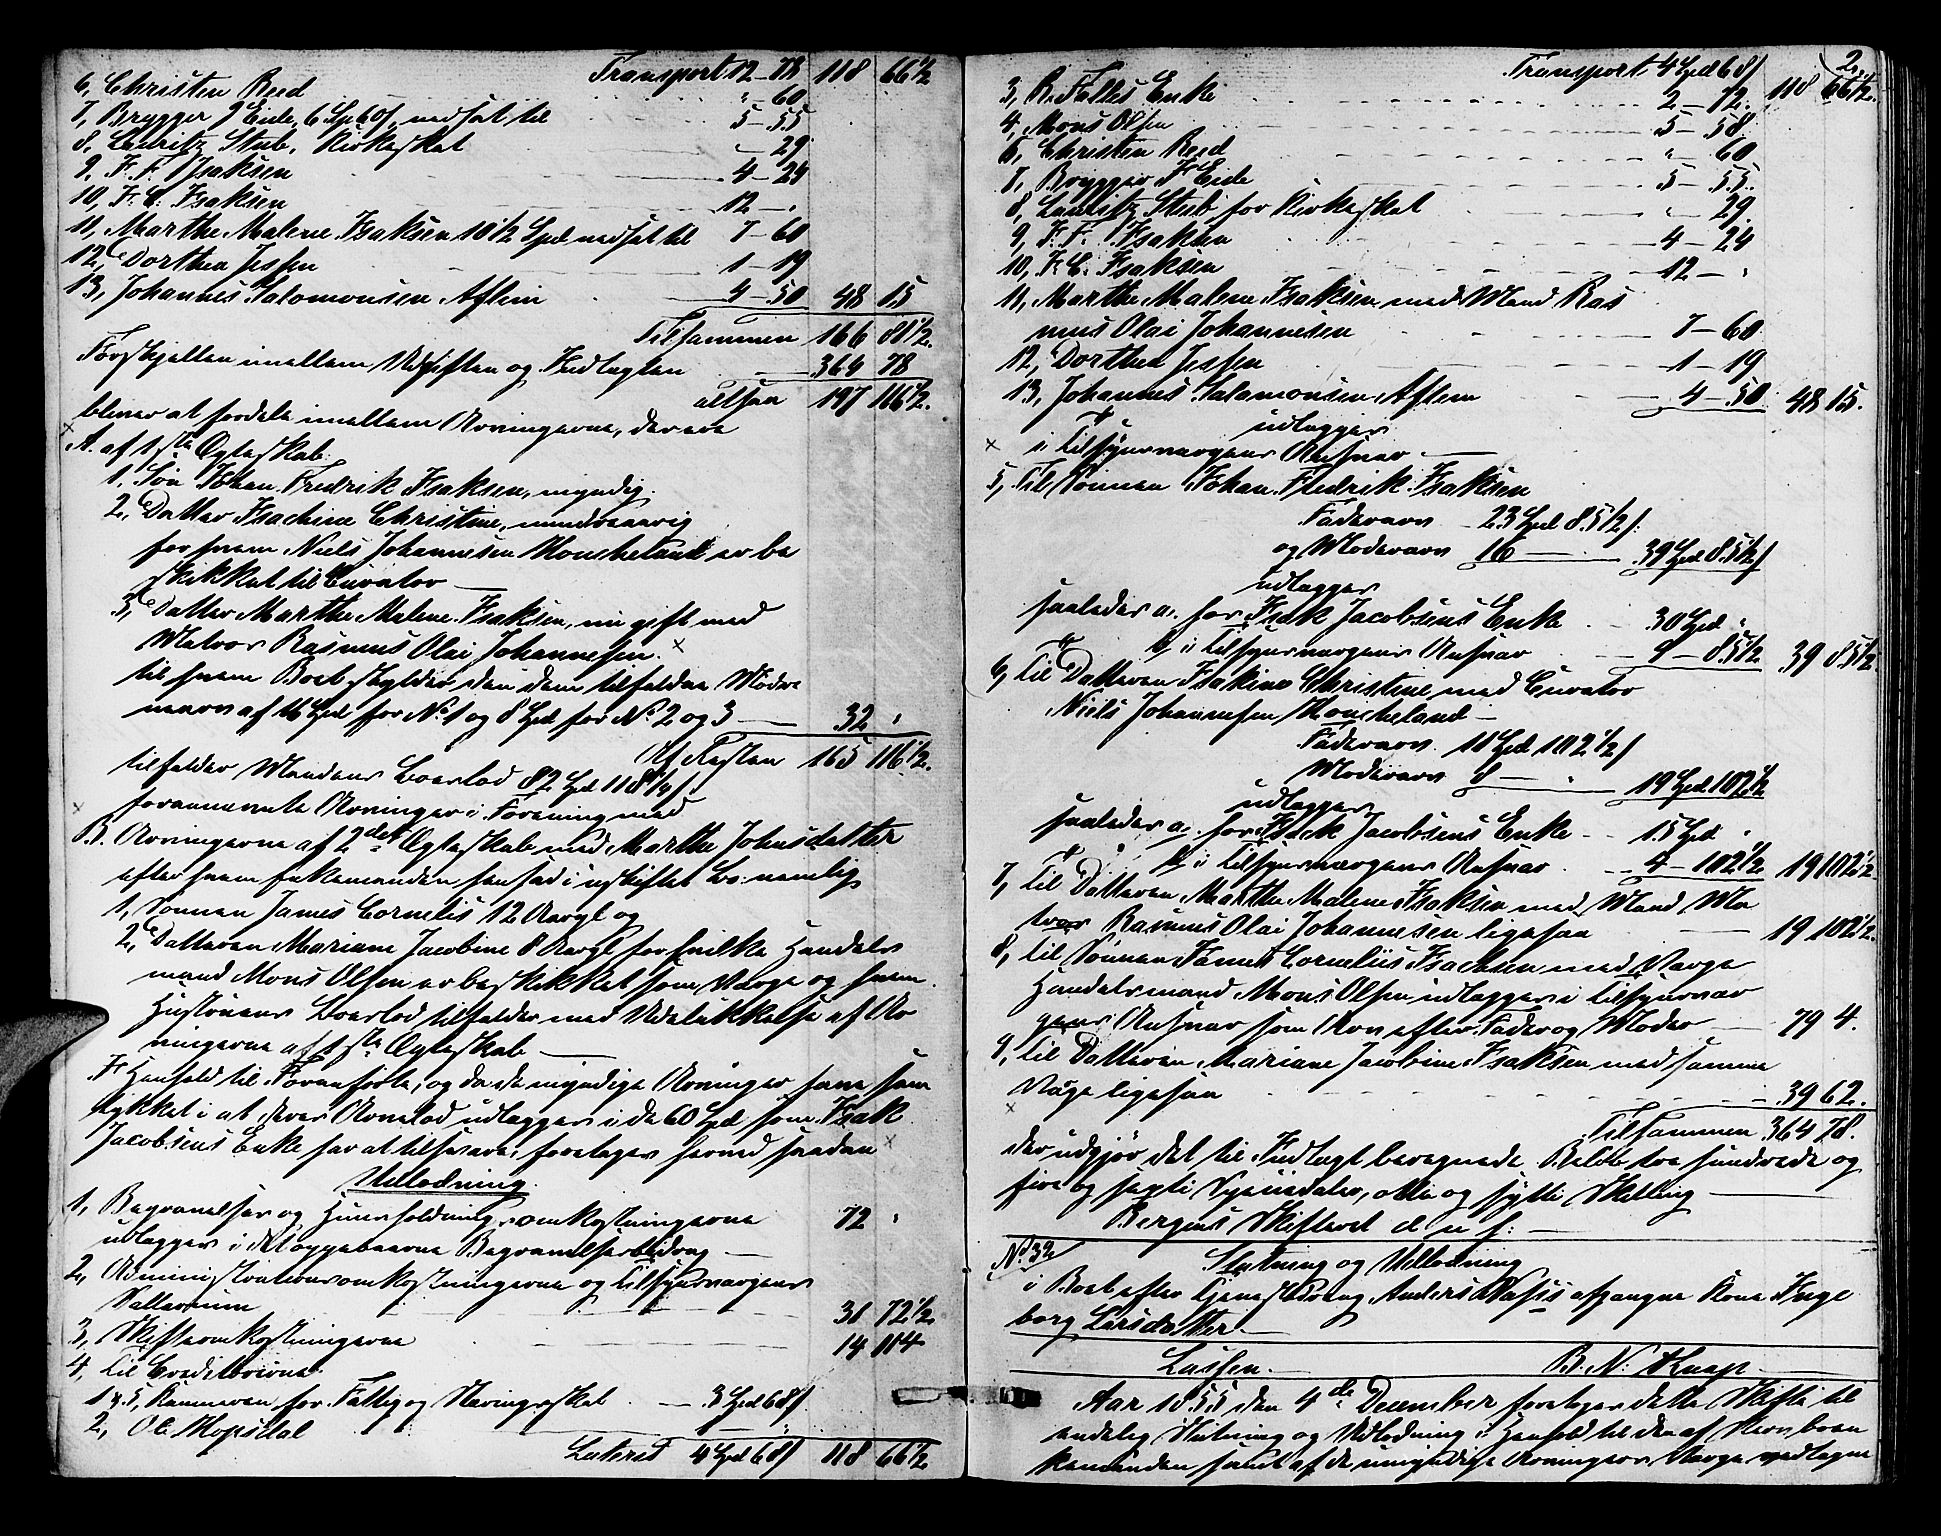 Transport 12 – 78 118 66 1/2
6, Christen Reed " 60
7, Brygger J Eide, 6 Spd 60 s, nedsat til 5 – 55
8, Lauritz Stub, Kirkeskat " – 29
9, F. F. Isaksen 4 – 24
10, F. C. Isaksen 12 – "
11, Marthe Malene Isaksen 10 1/2 Spd nedsat til 7 – 60
12, Dorthea Jessen 1 – 19
13, Johannes Salomonsen Aflem 4 – 50 48 15
Tilsammen 166 81 1/2.
Forskjellen imellem Udgiften og Indtægten 364 78
altsaa 197 116 1/2.
bliver at fordele imellem Arvingerne, der ere
A. af 1ste Ægteskab:
1, Søn Johan Fredrik Isaksen, myndig.
2, Datter Isachine Christine, mindreaarig
for hvem Niels Johannesen Houcheland er be
skikket til Curator
3, Datter Marthe Malene Isaksen, nu gift med
Matros Rasmus Olai Johannesen.
til hvem Boet skylder den dem tilfaldne Mødre
nearv af 16 Spd for No 1 og 8 Spd for No 2 og 3 32 "
Af Resten 165 116 1/2.
tilfalder Mandens Boeslod 82 Spd 118 1/4 s
forannævnte Arvinger i Forening med
B. Arvingerne af 2det Ægteskab med Marthe Johnsdatter
efter hvem Enkemanden hensad i uskiftet Bo nemlig
1, Sønnen James Cornelis 12 Aargl og
2, Datteren Mariane Jacobine 8 Aargl for hvilke Handels
mand Mons Olsen er beskikket som Værge og hvem
Hustruens Boeslod tilfalder med Udelukkelse af Ar
vingerne af 1ste Ægteskab
I Henhold til Foranførte, og da de myndige Arvinger have sam
tykket i at deres Arvelod udlægges i de 60 Spd som Isak
Jacobsens Enke har at tilsvare, foretages herved saadan
Udlodning.
1, Begravelses og Huusholdningsomkostningerne 72 "
udlægges i det oppebaarne Begravelsesbidrag
2, Administrationsomkostningerne og Tilsynsværgens
Sallarium 31 72 1/2.
3, Skifteomkostningerne 14 114
4, til Creditorerne
1 & 5, Kæmneren for Fattig og Næringsskat 3 Spd 68 s
2, Ole Hopsdal
Lateris 4 Spd 68 s 118 66 1/2
2.
Transport 4 Spd 68 s 118 66 1/2.
3, R. Falles Enke 2 – 72.
4, Mons Olsen 5 – 58
6, Christen Reed " 60
7, Brygger J Eide 5 – 55.
8, Lauritz Stub for Kirkeskat " – 29.
9, F. F. Isaksen 4 – 24
10, F. C. Isaksen 12 – "
11, Marthe Malene Isaksen med Mand Ras
mus Olai Johannesen 7 – 60
12, Dorthea Jessen 1 – 19
13, Johannes Salomonsen Aflem 4 – 50 48 15.
udlægges
i Tilsynsværgens Ansvar
5, Til Sønnen Johan Fredrik Isaksen
Faderarv 23 Spd 85 1/2 s.
og Moderarv 16 – 39 Spd 85 1/2 s
udlægges
saaledes a. hos Isak Jacobsens Enke 30 Spd "
b, i Tilsynsværgens Ansvar 9 – 85 1/2 39 85 1/2
6, til Datteren Isakine Christine med Curator
Niels Johannesen Houcheland –
Faderarv 11 Spd 102 1/2 s
Moderarv 8 – " 19 Spd 102 1/2
udlægges
saaledes a. hos Isak Jacobsens Enke 15 Spd "
b, i Tilsynsværgens Ansvar 4 – 102 1/2 19 102 1/2
7, til Datteren Marthe Malene Isaksen med Mand Ma
tros Rasmus Olai Johannesen ligesaa 19 102 1/2.
8, til Sønnen James Corneliis Isachsen med Værge
Handelsmand Mons Olsen udlægges i Tilsynsvær
gens Ansvar som Arv efter Fader og Moder 79 4.
9, til Datteren Mariane Jacobine Isaksen med samme
Værge ligesaa 39 62.
Tilsammen 364 78.
der udgjør det til Indtægt beregnede Beløb tre hundrede og
fire og sexti Speciedaler, otte og sytti Skilling
Bergens Skifteret d. u. s:
No 32
Slutning og Udlodning
i Boet efter Tjenestedreng Anders Wasiis afgangne Kone Inge
borg Larsdatter
Lassen. B. N: Knap.
Aar 1855 den 4de December foretoges dette Skifte til
endelig Slutning og Udlodning i Henhold til den af
kemanden samt af de umyndige Arvingers Værge vedtagne